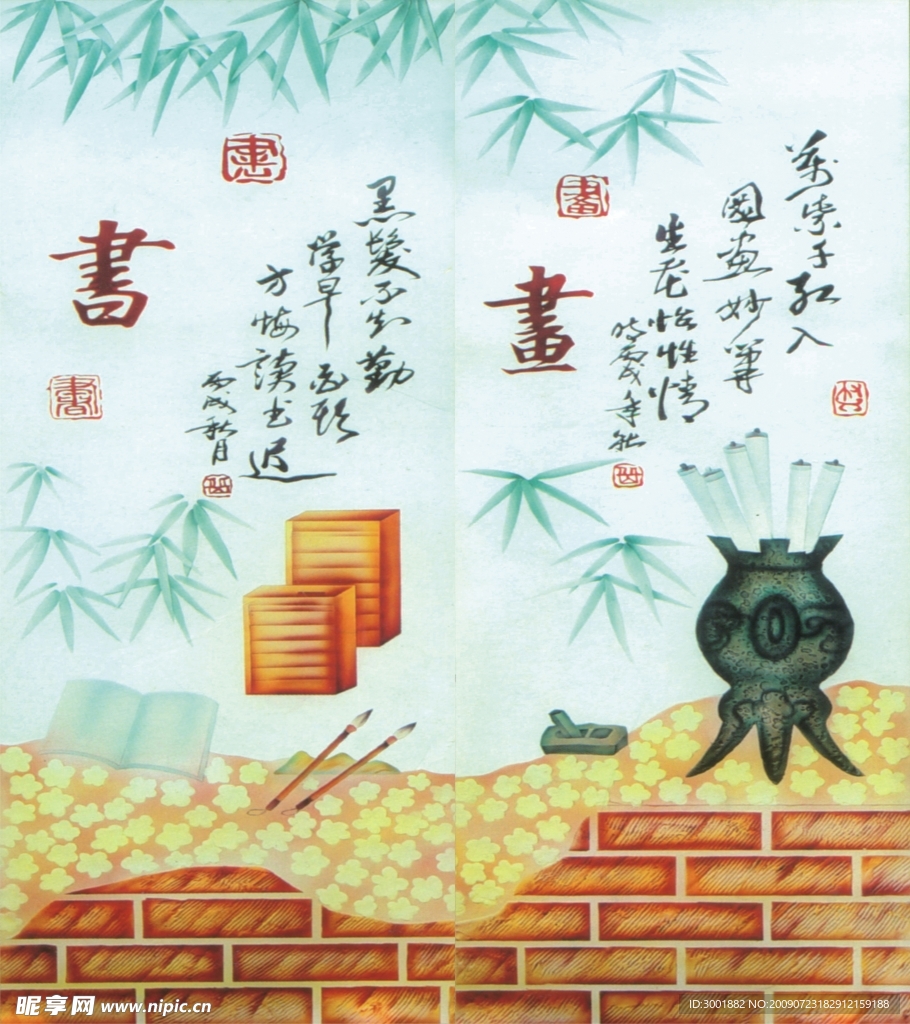 書
黑髮不知勤
学早 白頭
方悔讀书遲
丙戌秋月
畫
萬紫千紅入
國画妙筆
生花怡性情
時丙戌年秋
昵享网 www.nipic.cn
ID:3001882 NO:20090723182912159188